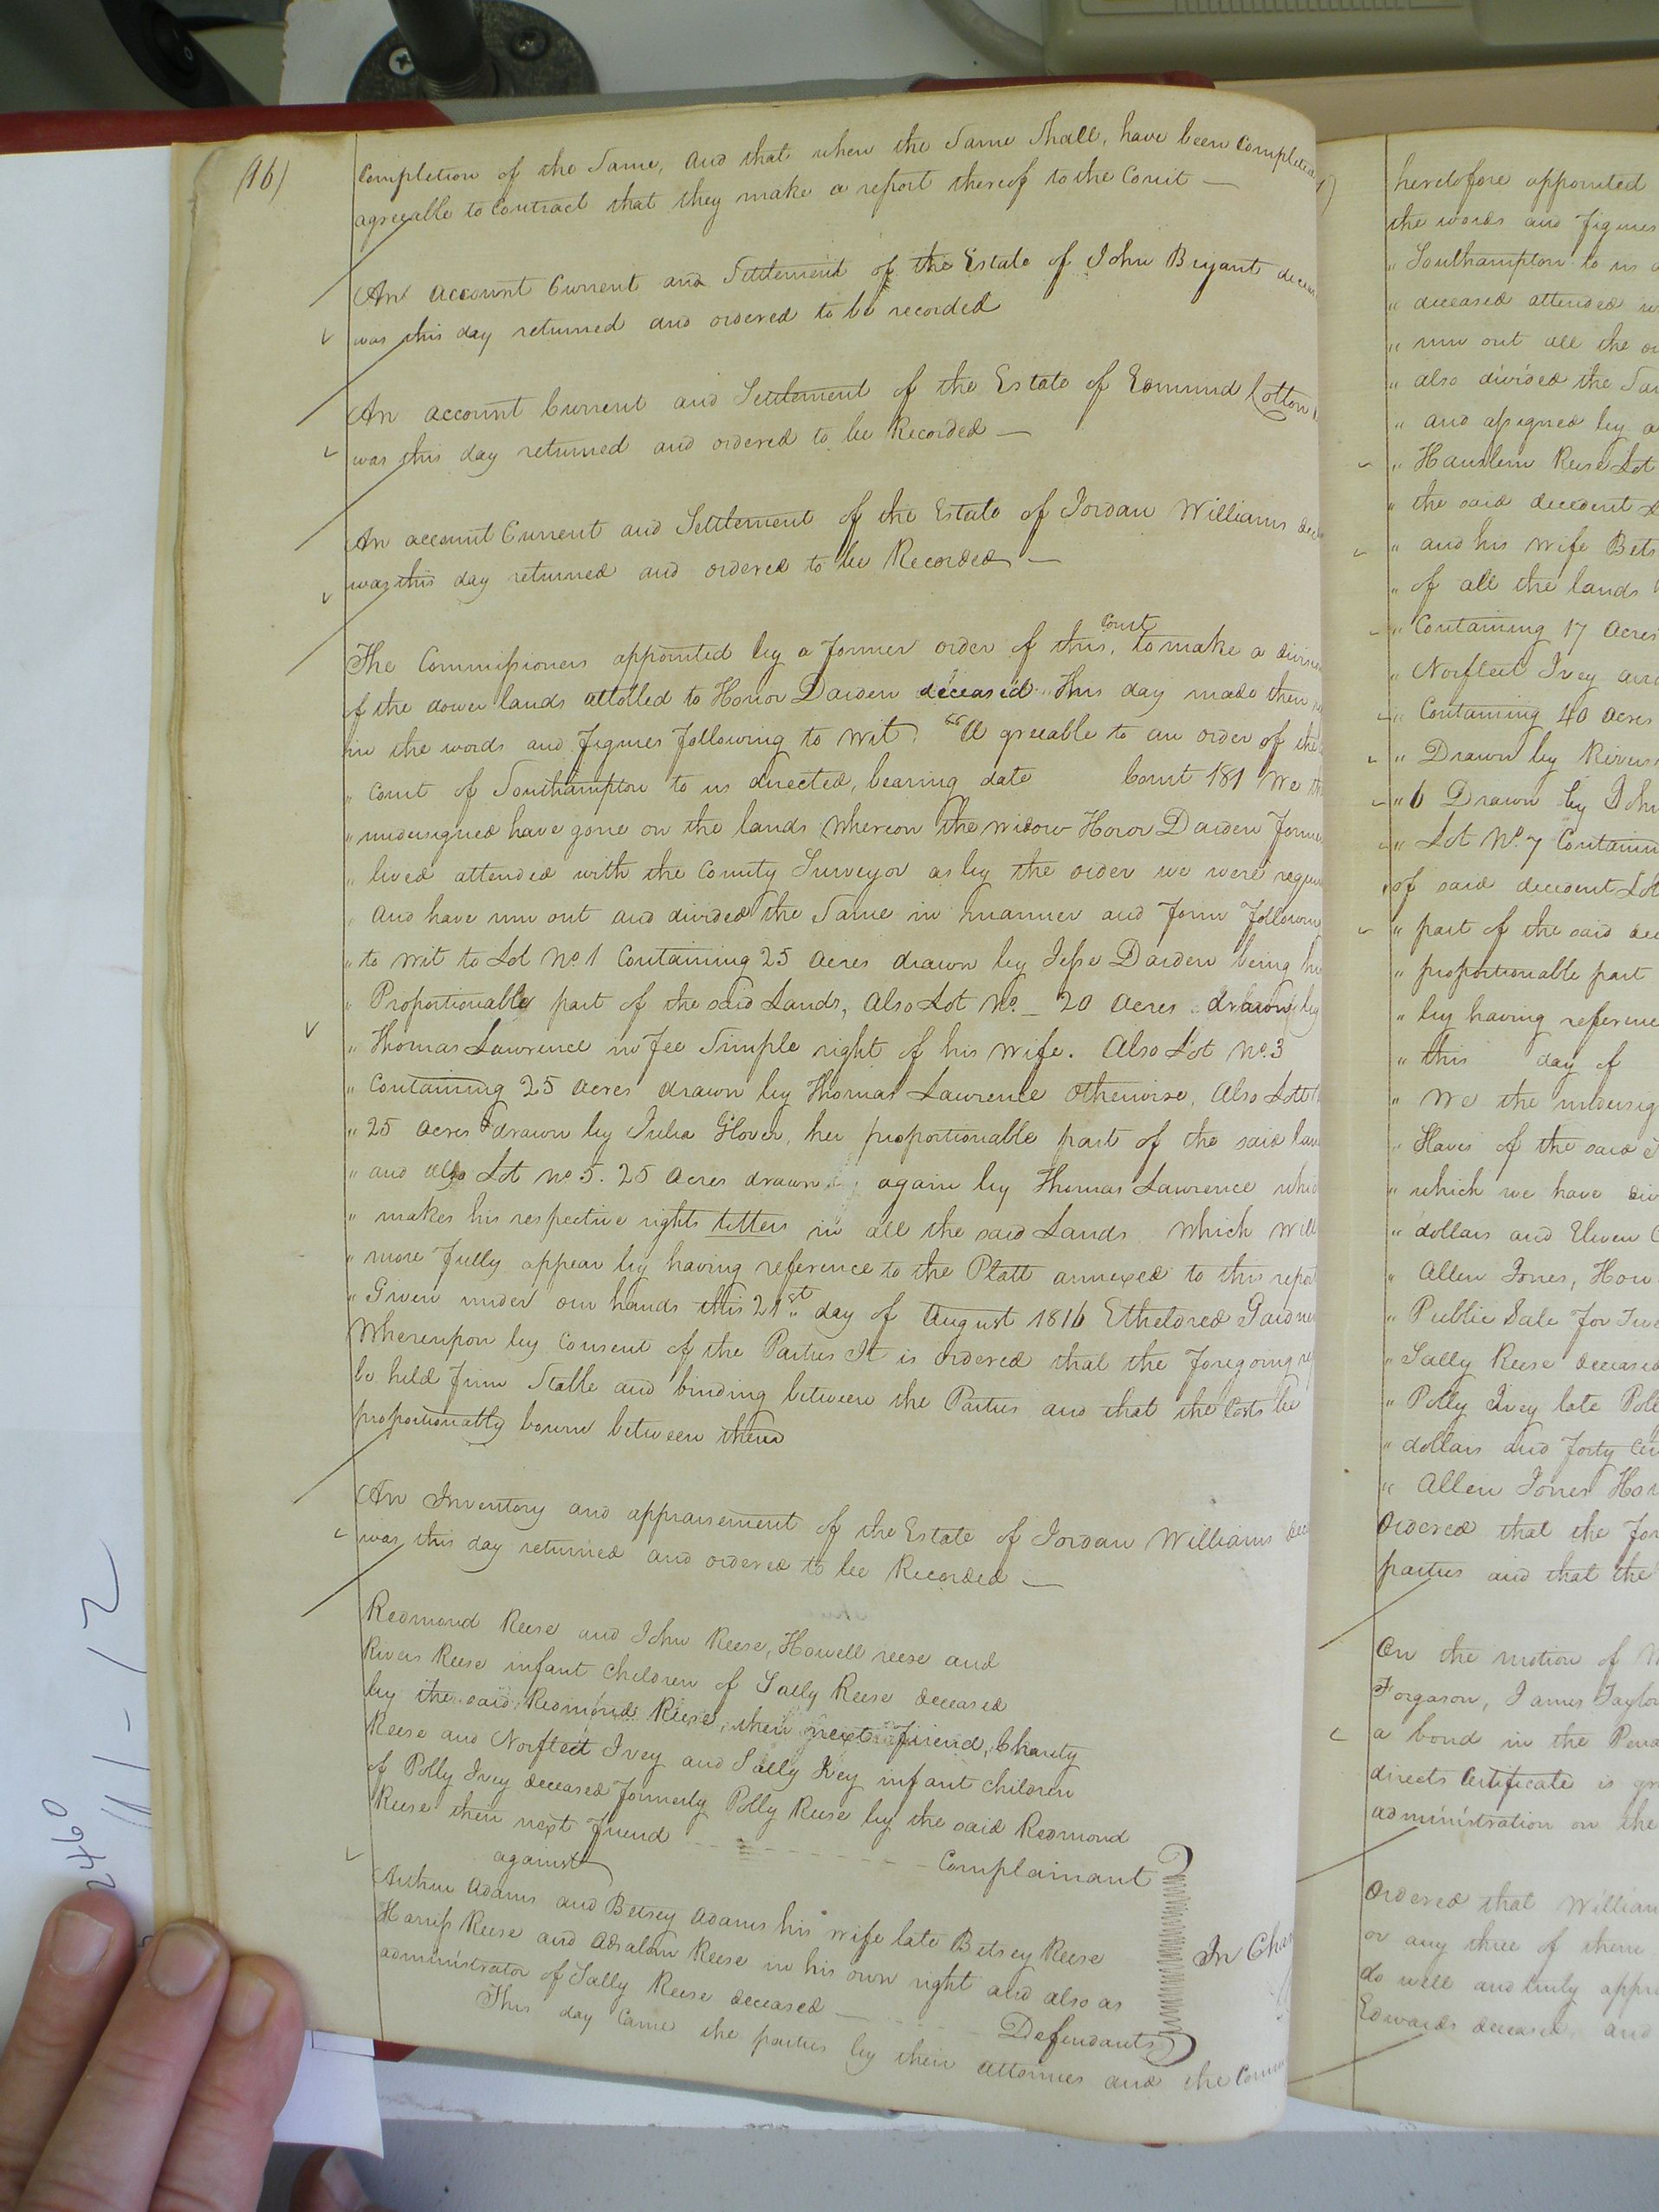 (16)
Completion of the Same, and that when the Same Shall, have been Completed
agreeable to Contract that they make a report thereof to the Court —
An account Current and Settlement of the Estate of John Bryant
was this day returned and ordered to be recorded
An account Current and Settlement of the Estate of Edmund Cotton
was this day returned and ordered to be Recorded —
An account Current and Settlement of the Estate of Jordan Williams
was this day returned and ordered to be Recorded —
Court
The Commissioners appointed by a former order of this, to make a
of the dower lands allotted to Honor Darden deceased This day made their
in the words and figures following to wit, "A greeable to an order of the
" Court of Southampton to us directed, bearing date Court 181 We
" undersigned have gone on the lands whereon the widow Honor Darden
" lived attended with the County Surveyor as by the order we were
" And have run out and divided the Same in manner and form
" to wit to Lot No 1 Containing 25 acres drawn by Jesse Darden being
" Proportionable part of the said Lands, Also Lot No. _ 20 Acres drawn by
" Thomas Lawrence in Fee Simple right of his wife. Also Lot No. 3
" Containing 25 acres drawn by Thomas Lawrence Otherwise, Also Lott
" 25 acres drawn by Julia Glover, her proportionable part of the said
" and also Lot No 5. 25 Acres drawn again by Thomas Lawrence
" makes his respective rights in all the said Lands Which will
" more fully appear by having reference to the Platt annexed to this
" Given under our hands this 21st day of August 1816 Etheldred
Whereupon by Consent of the Parties It is ordered that the foregoing
be held firm Stable and binding between the Parties and that the Costs be
proportionably bourn between them
An Inventory and appraisement of the Estate of Jordan Williams
was this day returned and ordered to be Recorded —
Redmond Reese and John Reese, Howell reese and
Rivers Reese infant Children of Sally Reese deceased
by the said Redmond Reese, their next friend, Charity
Reese and Norfleet Ivey and Sally Ivey infant children
of Polly Ivey deceased formerly Polly Reese by the said Redmond
Reese their next friend Complainant
against
Arthur Adams and Betsey Adams his wife late Betsey Reese
Harris Reese and Absalom Reese in his own right and also as In
administrator of Sally Reese deceased — Defendants
This day Came the parties by their attornies and the
heretofore appointed
the words and figures
" Southampton to us
" deceased attended
" run out all the
" also divided the
" and assigned by
" Reese Lot
" the said decedent
" and his wife
" of all the lands
" Containing 17 Acres
" Norfleet Ivey and
" Containing 40 acres
" Drawn by Rivers
" 6 Drawn by John
" Lot No. 7
" of said decedent Lot
" part of the said
" proportionable part
" by having
" this day of
" We the
" of the said
" which we have
" dollars and Eleven
" Allen Jones,
" Public Sale for
" Sally Reese deceased
" Polly Ivey late
" dollars and forty
" Allen Jones
Ordered that the
parties and that the
On the motion of
Forgason, James Taylor
a bond in the
directs Certificate is
administration on the
Ordered that William
or any three of them
do well and truly
Edwards deceased and
11-12